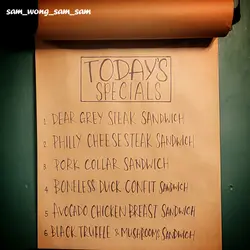 sam_wong_sam_sam
TODAYS
SPECIALS
1. DEAR GREY STEAK SANDWICH
2. PHILLY CHEESESTEAK SANDWICH
3. PORK COLLAR SANDWICH
4. BONELESS DUCK CONFIT SANDWICH
5. AVOCADO CHICKEN BREAST SANDWICH
6. BLACK TRUFFLE & MUSHROOMS SANDWICH